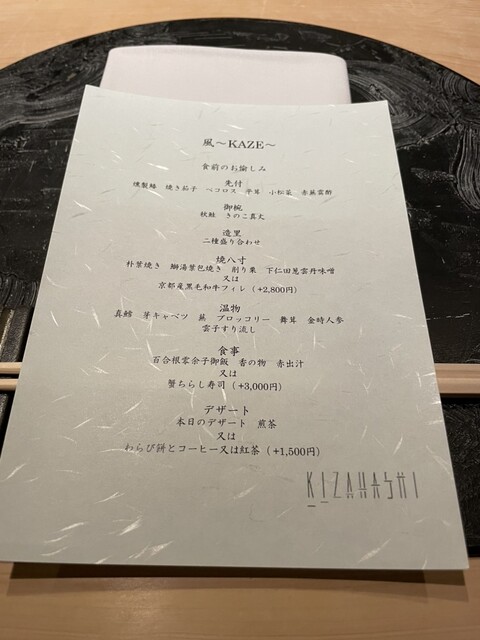 風～KAZE～
食前のお愉しみ
先付
燻製鰆 焼き茄子 ペコロス 平茸 小松菜 赤蕪雲酢
御椀
秋鮭 きのこ真丈
造里
二種盛り合わせ
焼八寸
朴葉焼き 鰤湯葉包焼き 削り栗 下仁田葱雲丹味噌
又は
京都産黒毛和牛フィレ（+2,800円）
温物
真鱈 芽キャベツ 蕪 ブロッコリー 舞茸 金時人参
雲子すり流し
食事
百合根零余子御飯 香の物 赤出汁
又は
蟹ちらし寿司（+3,000円）
デザート
本日のデザート 煎茶
又は
わらび餅とコーヒー又は紅茶（+1,500円）
KIZAHASHI